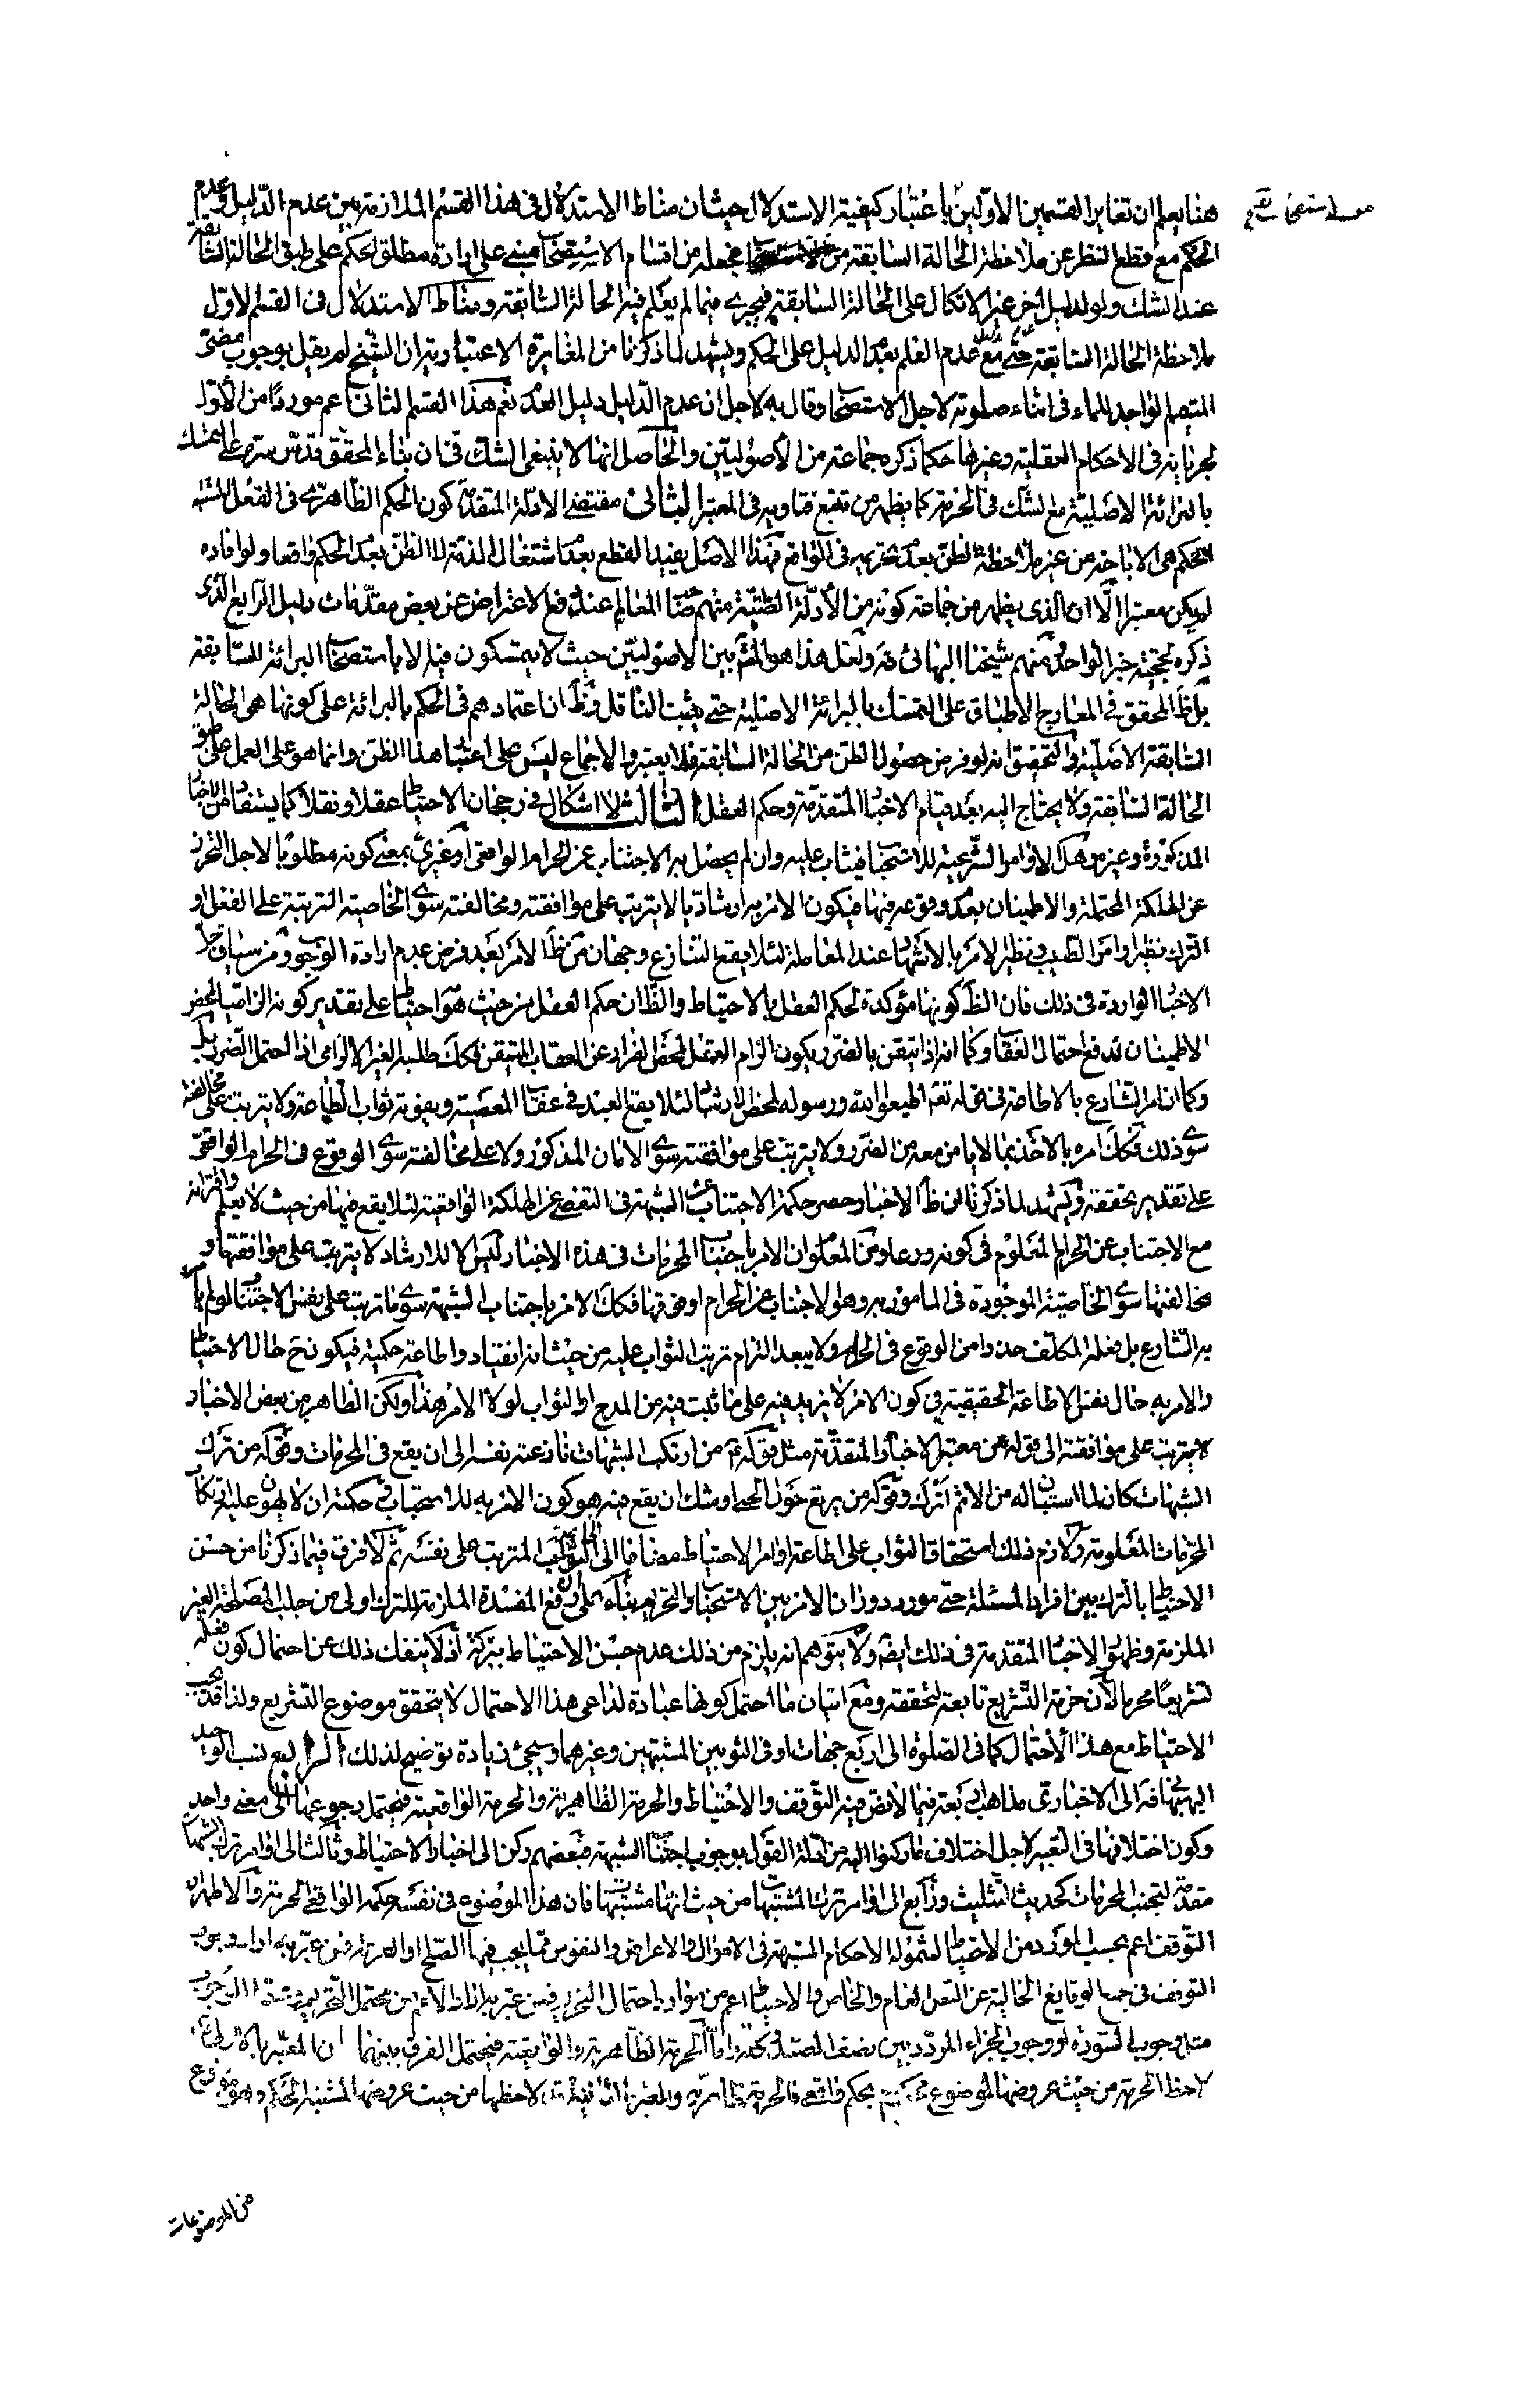 هنا يعلم ان تغاير القسمين الاولين باعتبار كيفية الاستدلال حيث ان مناط الاستدلال فى هذا القسم الملازمة بين عدم الدليل وعدم
الحكم مع قطع النظر عن ملاحظة الحالة السابقة فجعله من اقسام الاستصحاب مبنى على ارادة مطلق الحكم على طبق الحالة السابقة
عند الشك ولو لدليل اخر غير الاتكال على الحالة السابقة فيجرى فيما لم يعلم فيه الحالة السابقة ومناط الاستدلال فى القسم الاول
ملاحظة الحالة السابقة حتى مع عدم العلم بعدم الدليل على الحكم ويشهد لما ذكرنا من المغايرة الاعتبارية ان الشيخ لم يقل بوجوب مضى
المتيمم الواجد للماء فى اثناء صلوته لاجل الاستصحاب وقال به لاجل ان عدم الدليل دليل العدم نعم هذا القسم الثانى اعم موردا من الاول
لجريانه فى الاحكام العقلية وغيرها كما ذكره جماعة من الأصوليين والحاصل انه لا ينبغى الشك فى ان بناء المحقق قدس سره على التمسك
بالبرائة الاصلية مع الشك فى الحرمة كما يظهر من تتبع فتاويه فى المعتبر الثانى مقتضى الادلة المتقدمة كون الحكم الظاهرى فى الفعل المشتبه
الحكم هى الاباحة من غير ملاحظة الظن بعدم تحريمه فى الواقع فهذا الاصل يفيد القطع بعدم اشتغال الذمة لا الظن بعدم الحكم واقعا ولو افاده
لم يكن معتبرا الا ان الذى يظهر من جماعة كونه من الأدلة الظنية منهم صاحب المعالم عند دفع الاعتراض عن بعض مقدمات الدليل الرابع الذى
ذكره لحجية خبر الواحد ومنهم شيخنا البهائى قده ولعل هذا هو المشهور بين الاصوليين حيث لا يتمسكون فيه الا باستصحاب البرائة السابقة
بل ظ المحقق فى المعارج الاطباق على التمسك بالبرائة الاصلية حتى يثبت الناقل وظ ان اعتمادهم فى الحكم بالبرائة على كونها هى الحالة
السابقة الاصلية والتحقيق انه لو فرض حصول الظن من الحالة السابقة فلا يعتبر والاجماع ليس على اعتبار هذا الظن وانما هو على العمل على طبق
الحالة السابقة ولا يحتاج اليه بعد قيام الاخبار المتقدمة وحكم العقل الثالث لا اشكال فى رجحان الاحتياط عقلا ونقلا كما يستفاد من الاخبار
المذكورة وغيرها وهل الاوامر الشرعية للاستحباب فيثاب عليه وان لم يحصل به الاجتناب عن الحرام الواقعى او غيرى بمعنى كونه مطلوبا لاجل التحرز
عن الهلكة المحتملة والاطمينان بعدم وقوعه فيها فيكون الامر به ارشاديا لا يترتب على موافقته ومخالفته سوى الخاصية المترتبة على الفعل او
الترك نظير اوامر الطبيب ونظير الامر بالاشهاد عند المعاملة لئلا يقع التنازع وجهان من ظ الامر بعد فرض عدم ارادة الوجوب ومن سياق جل
الاخبار الواردة فى ذلك فان الظ كونها مؤكدة لحكم العقل بالاحتياط والظ ان حكم العقل من حيث هو احتياط على تقدير كونه الزاميا لمحض
الاطمينان لدفع احتمال العقاب وكما انه اذا تيقن بالضرر يكون الزام العقل لمحض الفرار عن العقاب المتيقن فكك طلبه الغير الالزامى اذا احتمل الضرر بل
وكما ان امر الشارع بالاطاعة فى قوله تعه اطيعوا الله ورسوله لمحض الارشاد لئلا يقع العبد فى عقاب المعصية ويفوته ثواب الطاعة ولا يترتب على مخالفته
سوى ذلك فكك امره بالاخذ بما لا يامن معه من الضرر ولا يترتب على موافقته سوى الامان المذكور ولا على مخالفته سوى الوقوع فى الحرام الواقعى
على تقدير تحققه ويشهد لما ذكرنا ان ظ الاخبار حصر حكمة الاجتناب عن الشبهة فى التفصى عن الهلكة الواقعية لئلا يقع فيها من حيث لا يعلم واقترانه
مع الاجتناب عن الحرام المعلوم فى كونه ورعا ومن المعلوم ان الامر باجتناب المحرمات فى هذه الاخبار ليس الا للارشاد لا يترتب على موافقتها و
مخالفتها سوى الخاصية الموجودة فى المامور به وهو الاجتناب عن الحرام او فوتها فكك الامر باجتناب الشبهة سوى ما ترتب على نفس الاجتناب لو لم يامر
به الشارع بل فعله المكلف حذرا من الوقوع فى الحرام ولا يبعد التزام ترتب الثواب عليه من حيث انه انقياد واطاعة حكمية فيكون ح حال الاحتياط
والامر به حال نفس الاطاعة الحقيقية فى كون الامر لا يزيد فيه على ما ثبت فيه من المدح او الثواب لولا الامر هذا ولكن الظاهر من بعض الاخبار
المتقدمة مثل قوله ع من ارتكب الشبهات نازعته نفسه الى ان يقع فى المحرمات وقوله من ترك
الشبهات كان لما استبان له من الاثم اترك وقوله من يرتع حول الحمى اوشك ان يقع فيه هو كون الامر به للاستحباب وحكمته ان لا يهون عليه ارتكاب
المحرمات المعلومة ولازم ذلك استحقاق الثواب على اطاعة اوامر الاحتياط مضافا الى المترتب على نفسه ثم لا فرق فيما ذكرنا من حسن
الاحتياط بالترك بين افراد المسئلة حتى مورد دوران الامر بين الاستحباب والتحريم بناء على ان دفع المفسدة الملزمة للترك اولى من جلب المصلحة الغير
الملزمة وظهور الاخبار المتقدمة فى ذلك ايضا ولا يتوهم انه يلزم من ذلك عدم حسن الاحتياط بتركه اذ لا ينفك ذلك عن احتمال كون فعله
تشريعا محرما لان حرمة التشريع تابعة لتحققه ومع اتيان ما احتمل كونها عبادة لداعى هذا الاحتمال لا يتحقق موضوع التشريع ولذا قد يجب
الاحتياط مع هذا الأحتمال كما فى الصلوة الى اربع جهات او فى الثوبين المشتبهين وغيرهما وسيجئ زيادة توضيح لذلك الرابع نسب الوحيد
البهبهانى قده الى الاخباريين مذاهب اربعة فيما لا نص فيه التوقف والاحتياط والحرمة الظاهرية والحرمة الواقعية فيحتمل رجوعها الى معنى واحد
وكون اختلافها فى التعبير لاجل اختلاف ما ركنوا اليه من ادلة القول بوجوب اجتناب الشبهة فبعضهم ركن الى اخبار الاحتياط وثالث الى اوامر ترك الشبهات
مقدمة لتجنب المحرمات كحديث التثليث ورابع الى اوامر ترك المشتبهات من حيث انها مشتبهات فان هذا الموضوع فى نفسه حكمه الواقعى الحرمة والاظهر ان
التوقف اعم بحسب المورد من الاحتياط لشموله الاحكام المشتبهة فى الاموال والاعراض والنفوس مما يجب فيها الصلح او القرعة فمن عبر به اراد وجوب
التوقف فى جميع الوقايع الخالية عن النص العام والخاص والاحتياط اعم من موارد احتمال التحريم فمن عبر به اراد الاعم من محتمل التحريم ومحتمل الوجوب
مثل وجوب السورة او وجوب الجزاء المردد بين نصف الصيد وكله واما الحرمة الظاهرية والواقعية فيحتمل الفرق بينهما ان المعبر بالاولى
لاحظ الحرمة من حيث عروضها لموضوع محكوم بحكم واقعى فالحرمة ظاهرية والمعبر بالثانية لاحظها من حيث عروضها لمشتبه الحكم وهو موضوع
من الموضوعات